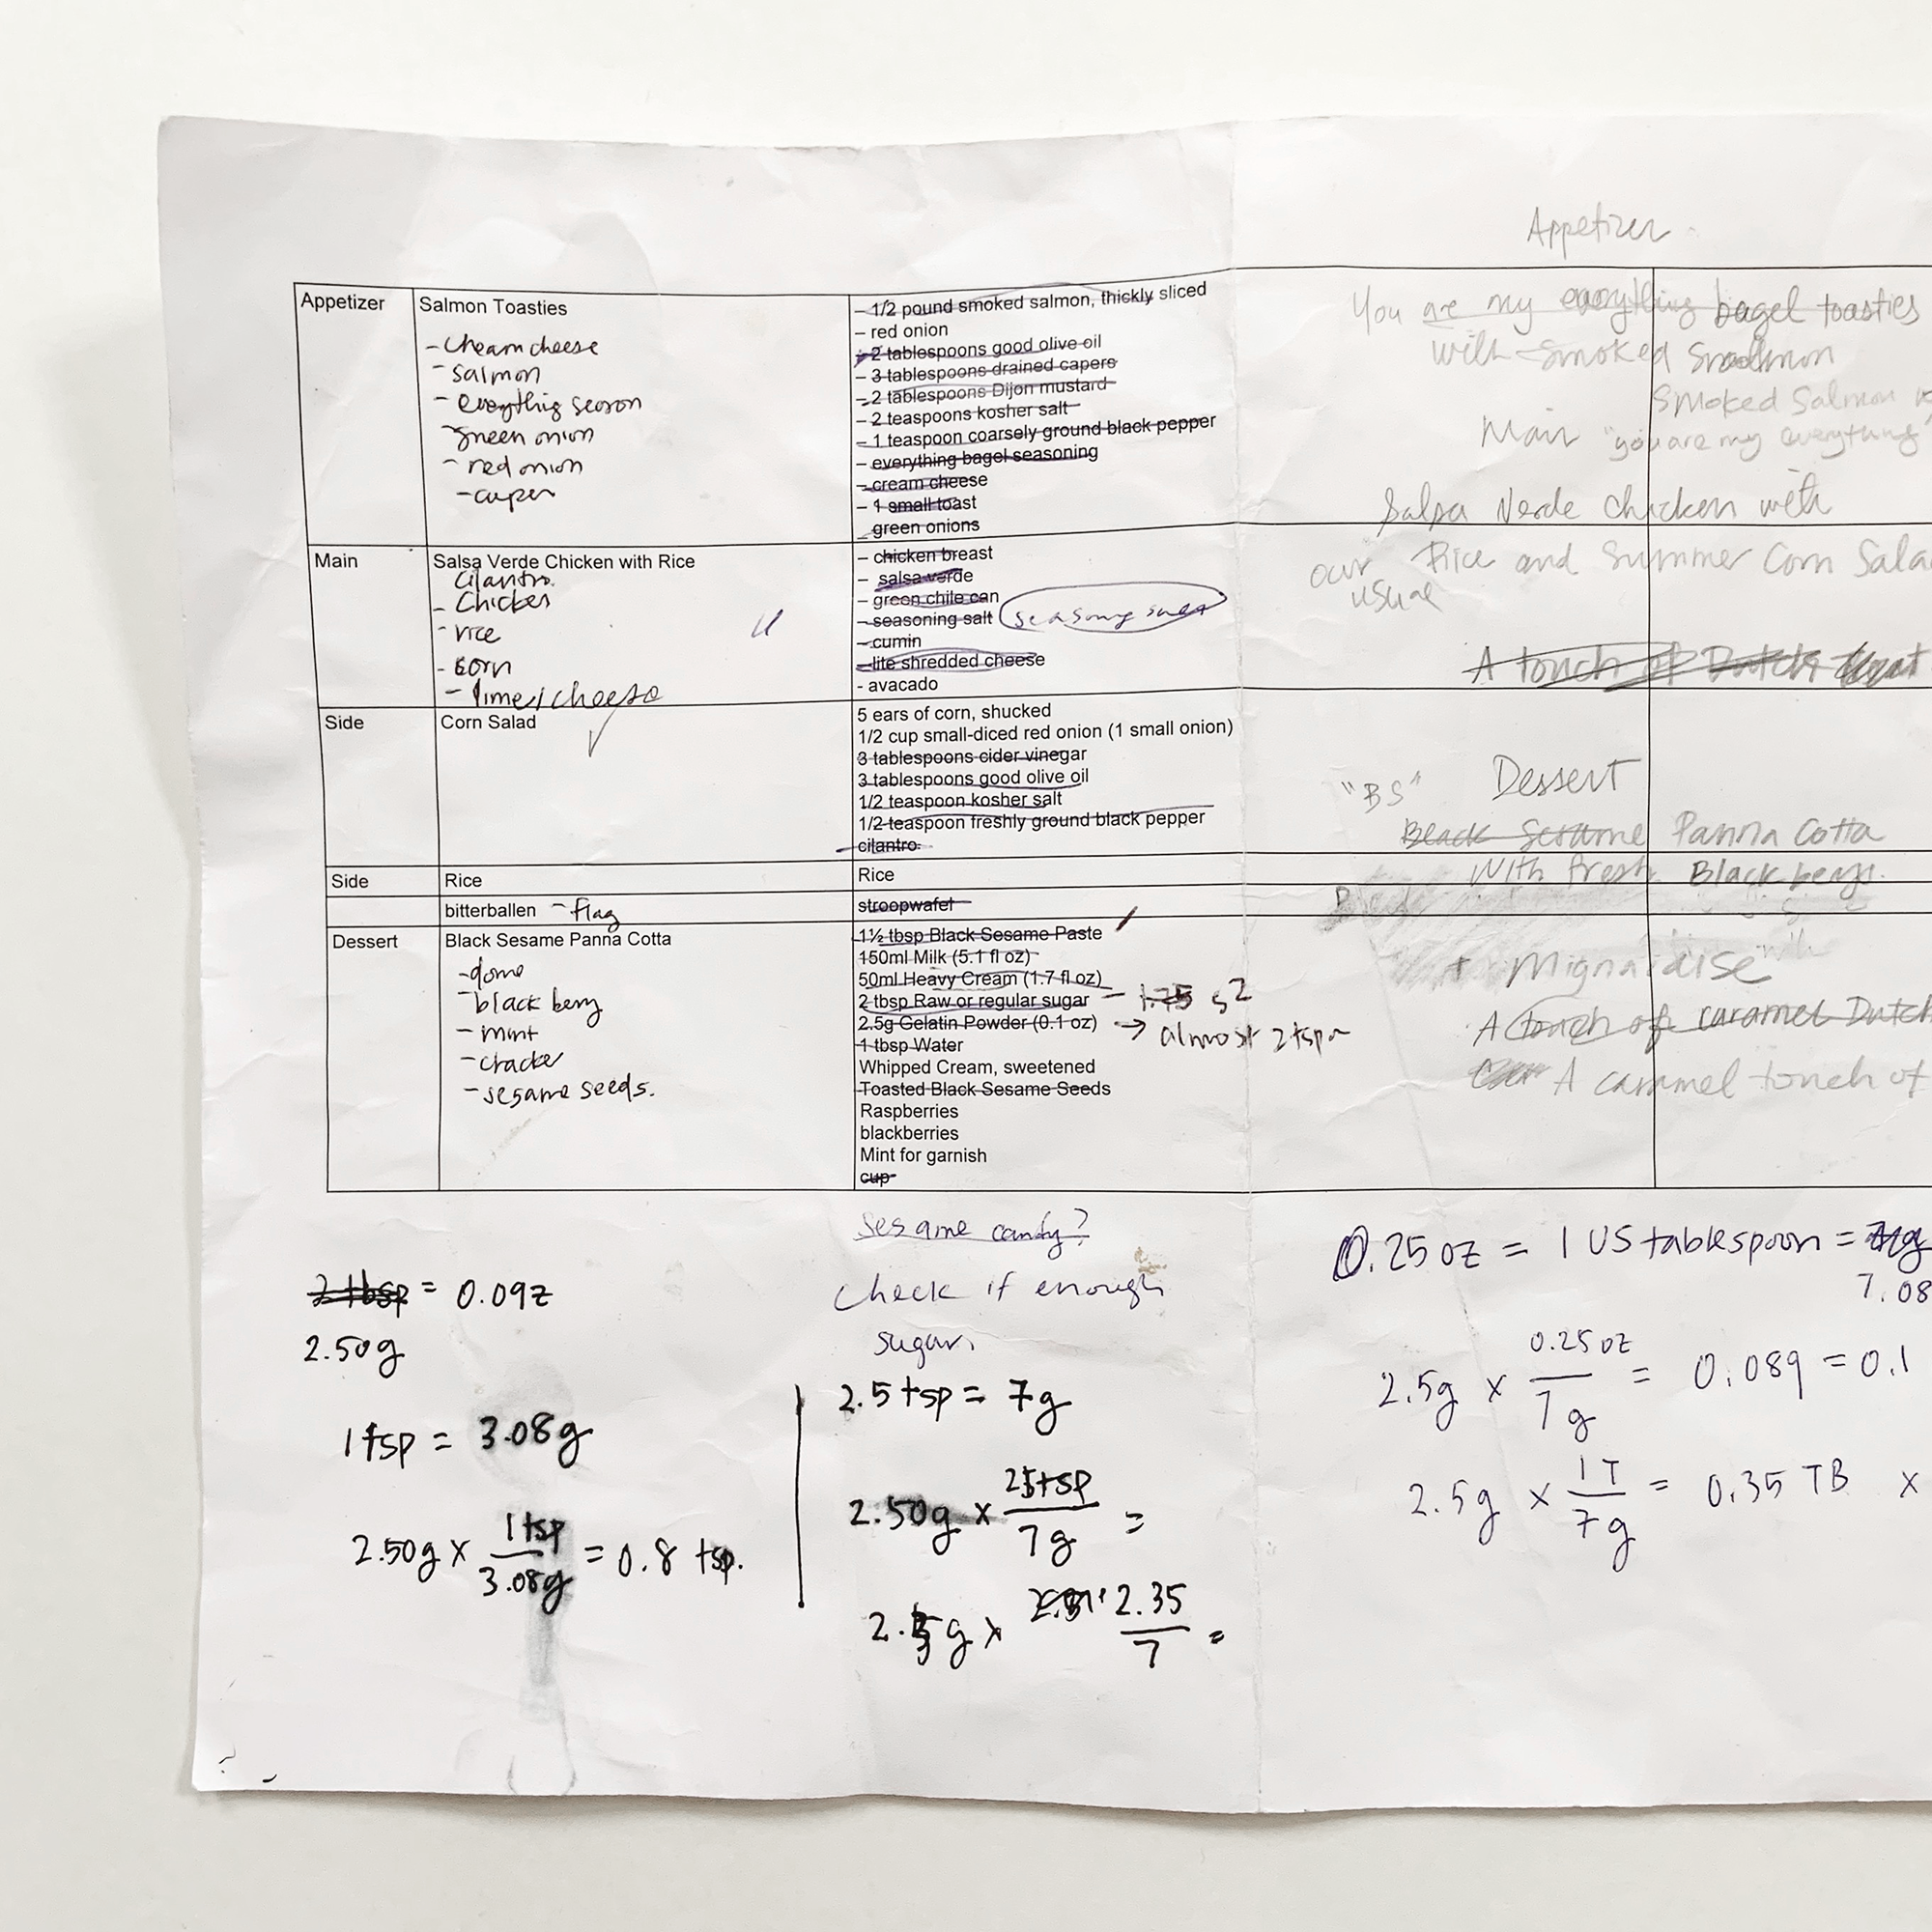 Appetizer
Appetizer
Salmon Toasties
- Cheam cheese
- salmon
- everything season
green onion
- red onion
- caper
- 1/2 pound smoked salmon, thickly sliced
- red onion
- 2 tablespoons good olive oil
- 3 tablespoons drained capers
- 2 tablespoons Dijon mustard
- 2 teaspoons kosher salt
- 1 teaspoon coarsely ground black pepper
- everything bagel seasoning
- cream cheese
- 1 small toast
green onions
You are my everything bagel toasties
with smoked
Smoked Salmon
Main
"you are my everything"
Main
Salsa Verde Chicken with Rice
Cilantro.
- Chicken
- rice
- corn
- lime / cheese
- chicken breast
- salsa verde
- green chile can
- seasoning salt
- cumin
- lite shredded cheese
- avacado
Salsa Verde Chicken with
our Rice and Summer Corn Sala
usual
A touch of Dutch
Side
Corn Salad
5 ears of corn, shucked
1/2 cup small-diced red onion (1 small onion)
3 tablespoons cider vinegar
3 tablespoons good olive oil
1/2 teaspoon kosher salt
1/2 teaspoon freshly ground black pepper
cilantro.
"BS" Dessert
Black Sesame Panna Cotta
With fresh Black berrys.
Side
Rice
Rice
bitterballen - flag
stroopwafel
Dessert
Black Sesame Panna Cotta
- dome
- black berry
- mint
- cracker
- sesame seeds.
1½ tbsp Black Sesame Paste
150ml Milk (5.1 fl oz)
50ml Heavy Cream (1.7 fl oz)
2 tbsp Raw or regular sugar
2.5g Gelatin Powder (0.1 oz) → almost 2 tsp
1 tbsp Water
Whipped Cream, sweetened
Toasted Black Sesame Seeds
Raspberries
blackberries
Mint for garnish
cup
+ Mignardise
A touch of caramel Dutch
A caramel touch of
Sesame candy?
Check if enough
sugar.
2 tbsp = 0.09z
2.50g
1 tsp = 3.08g
2.50g x 1 tsp / 3.08g = 0.8 tsp.
2.5 tsp = 7g
2.50g x 25 tsp / 7g =
2.5g x 2.35 / 7 =
0.25 oz = 1 US tablespoon =
7.08
2.5g x 0.25 oz / 7g = 0.089 = 0.1
2.5g x 1 T / 7g = 0.35 TB x